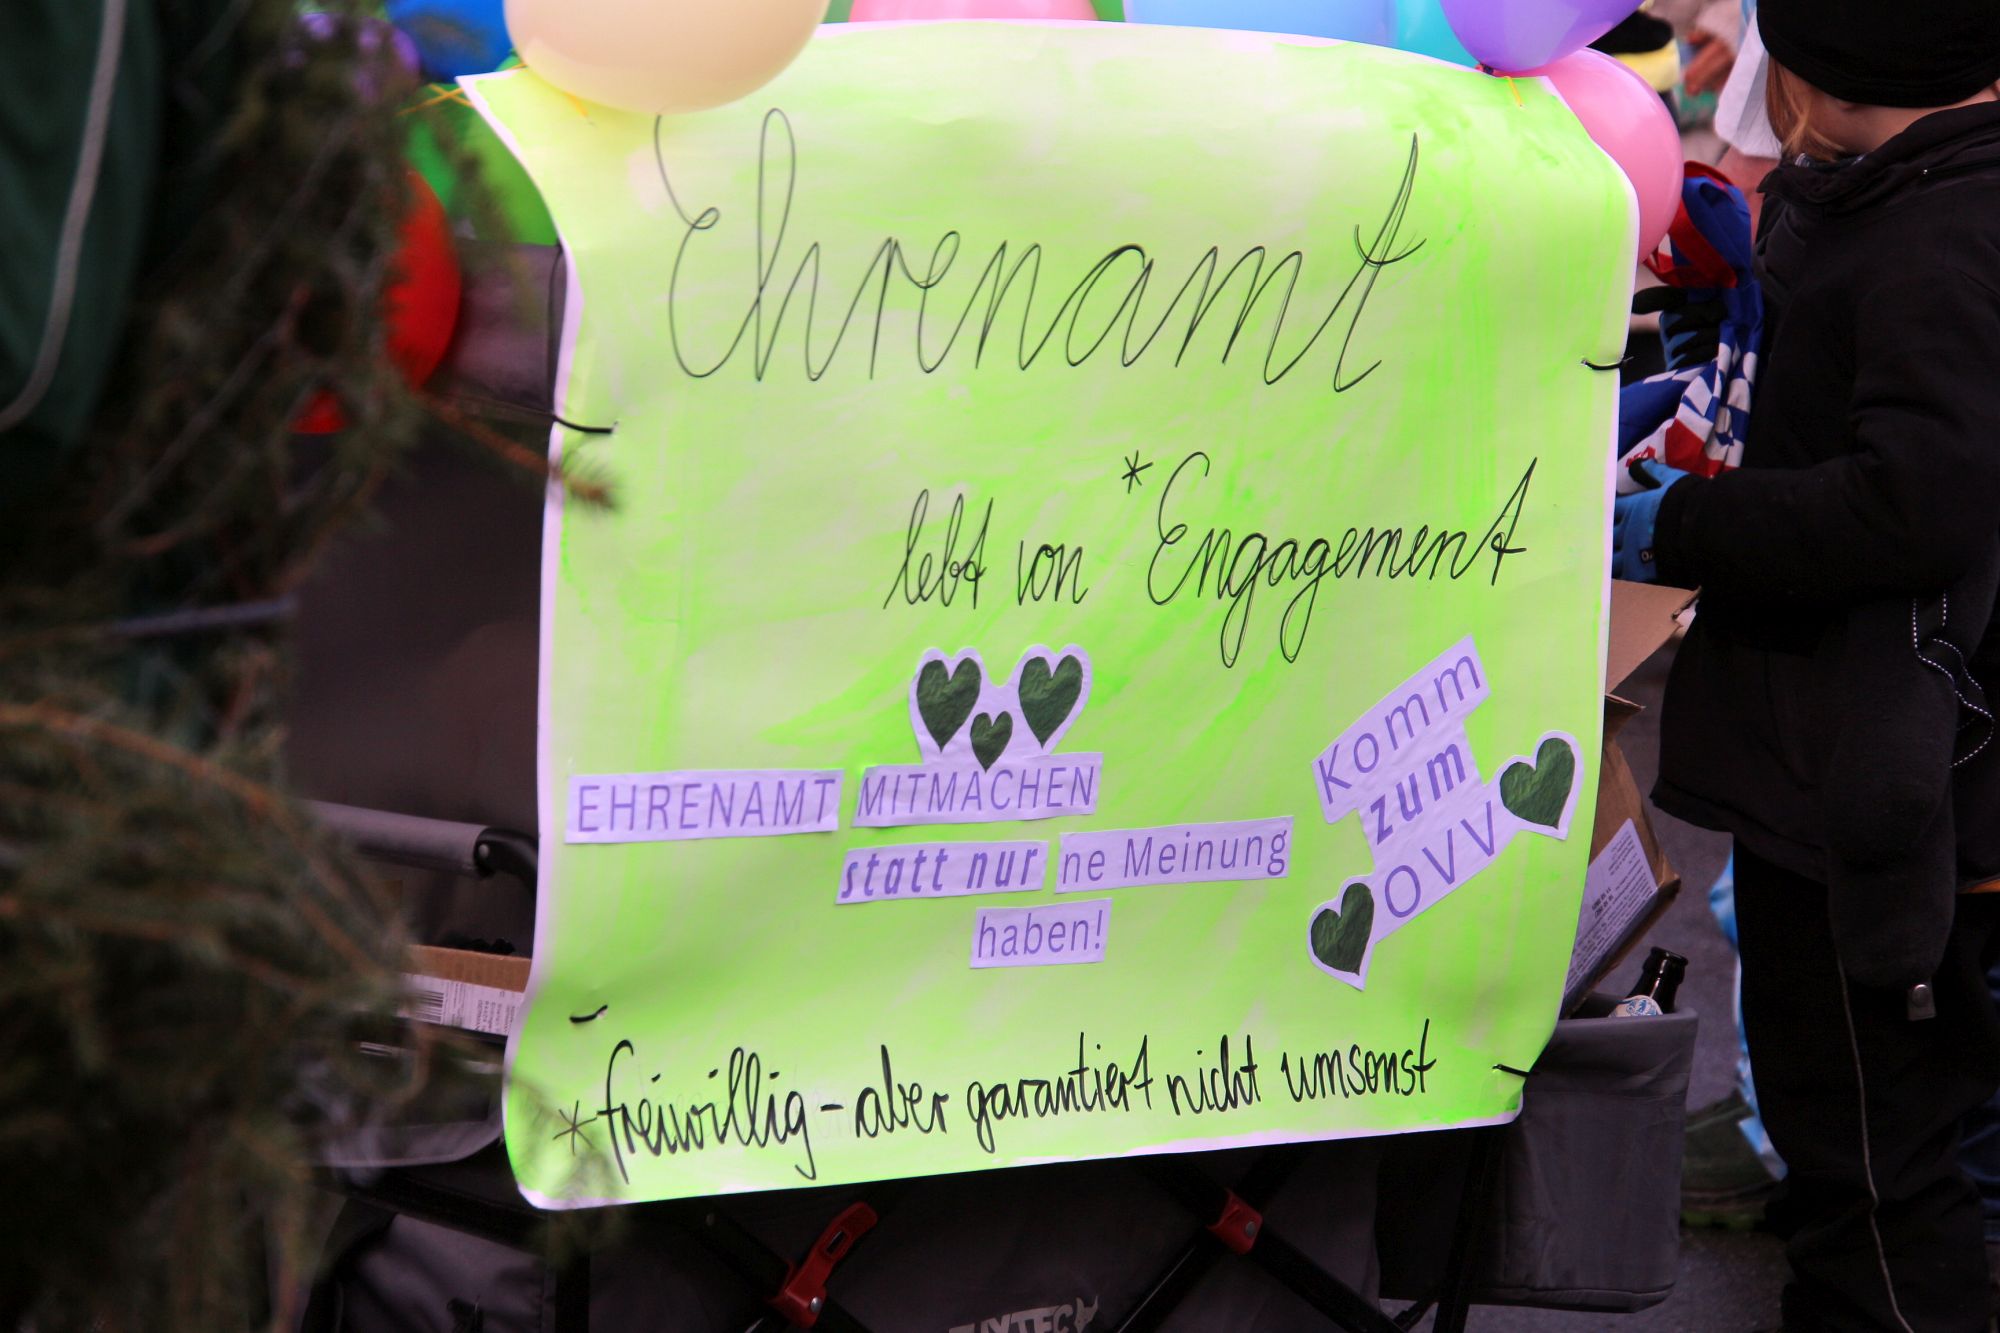 Ehrenamt
lebt von *Engagement
EHRENAMT MITMACHEN
statt nur ne Meinung
haben!
Komm
zum
OVV
*freiwillig - aber garantiert nicht umsonst